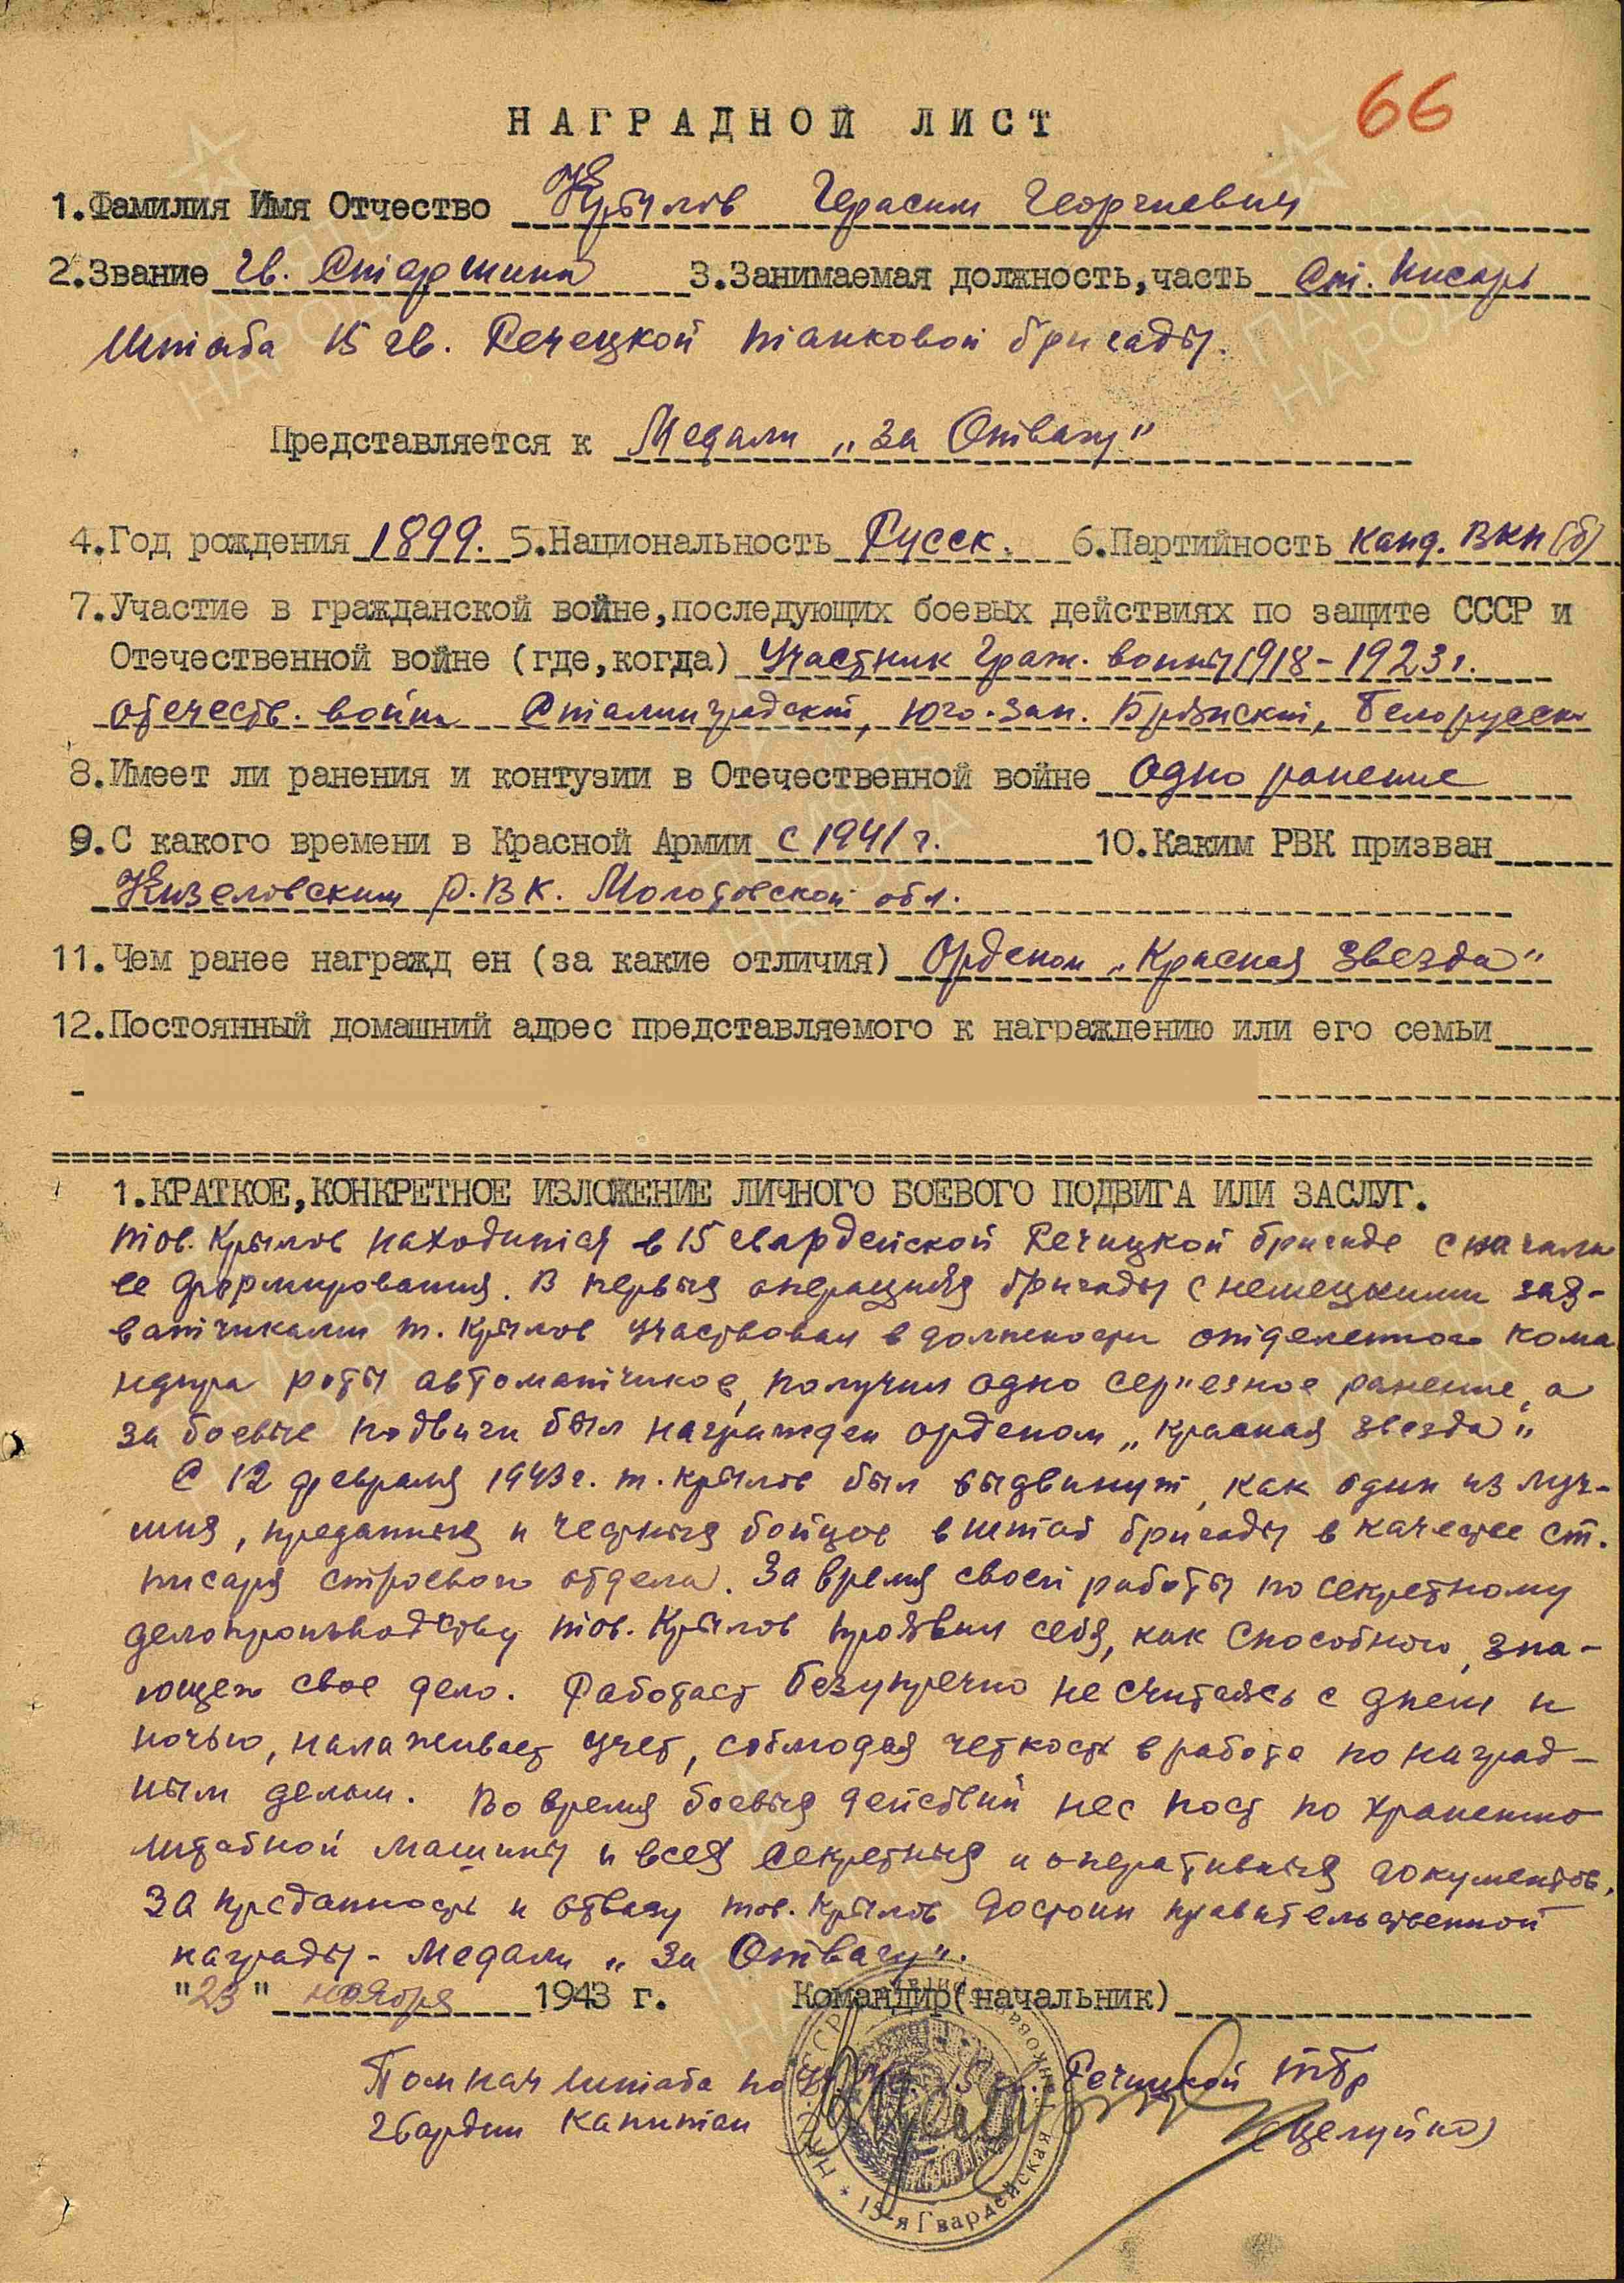 66
НАГРАДНОЙ ЛИСТ
1.Фамилия Имя Отчество Крылов Герасим Георгиевич
2.Звание гв. Старшина 3.Занимаемая должность,часть Ст. писарь
штаба 15 гв. Речецкой танковой бригады.
Представляется к Медали „За Отвагу"
4.Год рождения 1899. 5.Национальность Русск. 6.Партийность канд. ВКП(б)
7.Участие в гражданской войне,последующих боевых действиях по защите СССР и
Отечественной войне (где,когда) Участник Граж. войны 1918-1923 г.
отечеств. войны Сталинградский, Юго-Зап. Брянский, Белорусск
8.Имеет ли ранения и контузии в Отечественной войне Одно ранение
9.С какого времени в Красной Армии с 1941 г. 10.Каким РВК призван
Кизеловским Р.В.К. Молотовской обл.
11.Чем ранее награжд ен (за какие отличия) Орденом „Красная Звезда"
12.Постоянный домашний адрес представляемого к награждению или его семьи
1.КРАТКОЕ,КОНКРЕТНОЕ ИЗЛОЖЕНИЕ ЛИЧНОГО БОЕВОГО ПОДВИГА ИЛИ ЗАСЛУГ.
тов. Крылов находится в 15 гвардейской Речицкой бригаде с начала
ее формирования. В первых операциях бригады с немецкими зах-
ватчиками т. Крылов участвовал в должности отделенного кома
ндира роты автоматчиков, получил одно сер"езное ранение, а
за боевые подвиги был награжден орденом „Красная Звезда".
С 12 февраля 1943 г. т. Крылов был выдвинут, как один из луч-
ших, преданных и честных бойцов в штаб бригады в качестве ст.
писаря строевого отдела. За время своей работы по секретному
делопроизводству тов. Крылов проявил себя, как способного, зна-
ющего свое дело. Работает безупречно не считаясь с днем и
ночью, налаживает учет, соблюдая четкость в работе по наград-
ным делам. Во время боевых действий нес пост по хранению
штабной машины и всех секретных и оперативных документов.
За преданность и отвагу тов. Крылов достоин правительственной
награды - Медали „За Отвагу".
"23" ноября 1943 г. Командир(начальник)
Пом нач штаба по 15 гв. Речицкой тбр
гвардии Капитан (Целуйко)
НКО СССР * 15-я Гвардейская
ПАМЯТЬ НАРОДА